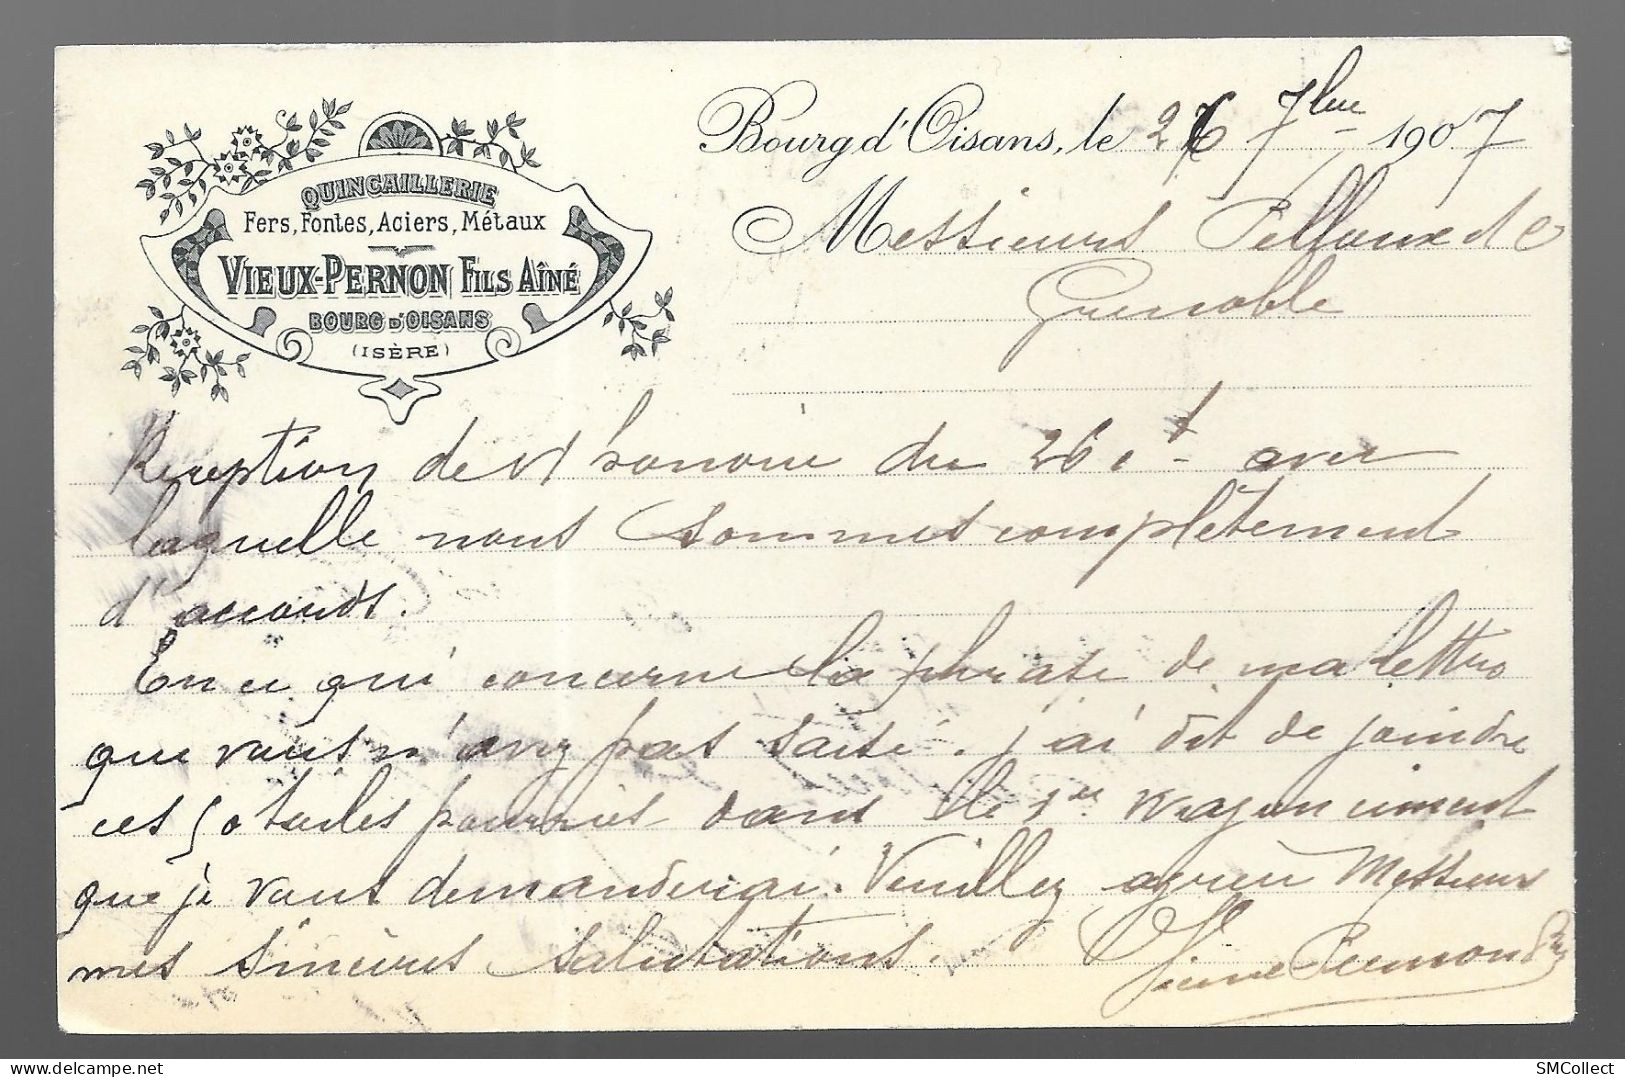 QUINCAILLERIE
Fers, Fontes, Aciers, Métaux
VIEUX-PERNON FILS AÎNÉ
BOURG D'OISANS
(ISÈRE)
Bourg d'Oisans, le 26 7bre 1907
Messieurs Pelloux &
Grenoble
Réception de v/ honorée du 26 ct avec
laquelle nous sommes complètement
d'accords.
En ce qui concerne la phrase de ma lettre
que vous n'avez pas saisi. j'ai dit de joindre
ces 50 tuiles pannes dans le 1er wagon ciment
que je vous demanderai. Veuillez agréer Messieurs
mes sincères salutations. Vieux Pernon
SMCollect